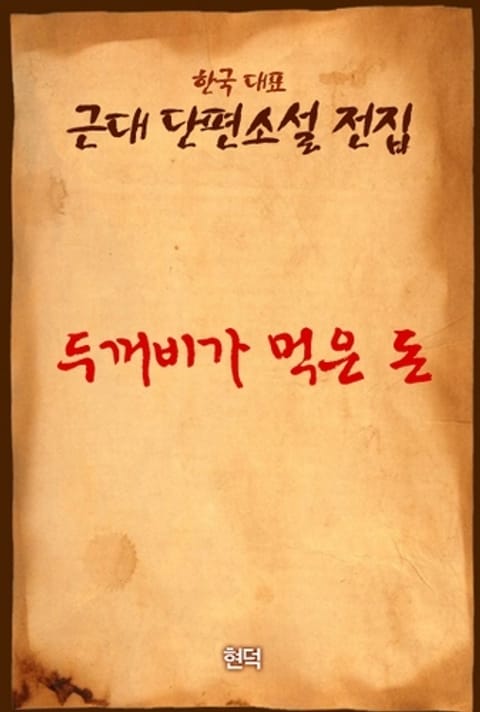 한국 대표
근대 단편소설 전집
두꺼비가 먹은 돈
현덕